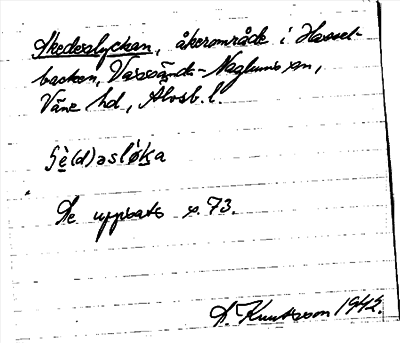 Skedeslyckan, åkerområde i Hassel-
backen, Vassända-Naglums sn,
Väne hd, Älvsb. l.
ʃè(d)əsl`øka
Se uppsats s. 73.
D. Knutsson 1942.